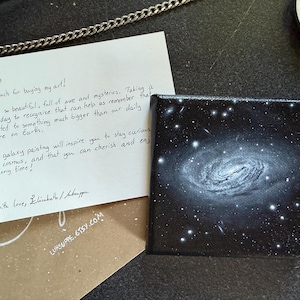 much for buying my art!
so beautiful, full of awe and mysteries. Taking a
day to recognize that can help us remember that
ted to something much bigger than our daily
on Earth.
galaxy painting will inspire you to stay curious
cosmos, and that you can cherish and enj
ong time!
th love, Elizabeth
.ETSY.COM